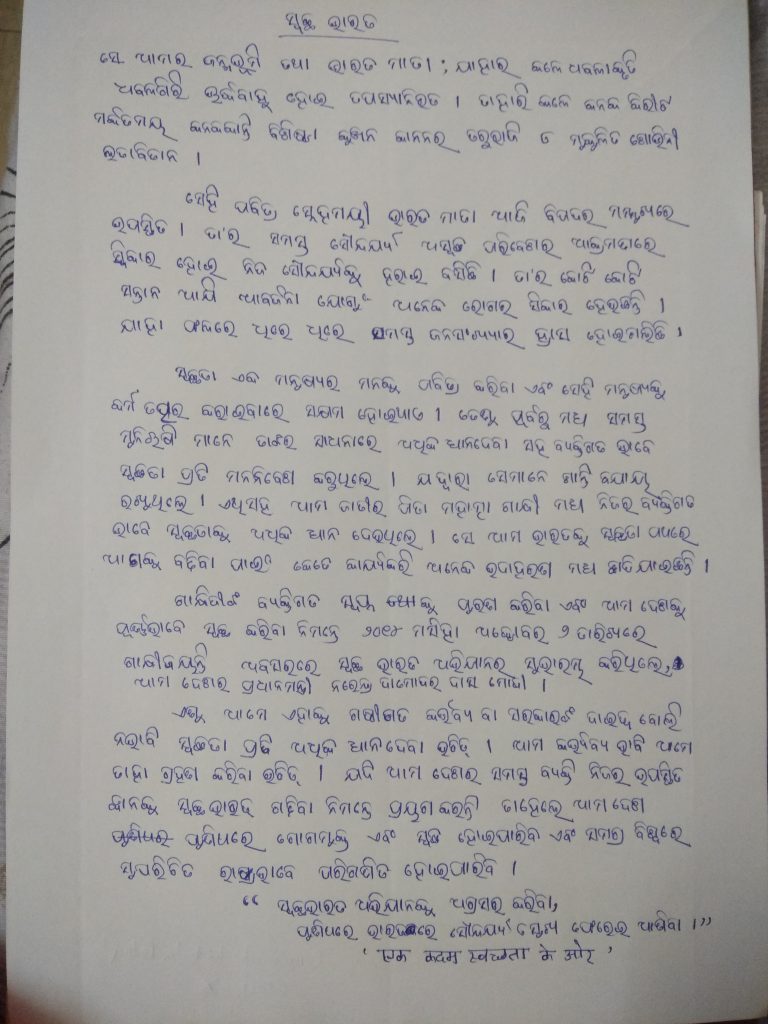 ସ୍ୱଚ୍ଛ ଭାରତ
ସେ ଆମର ଜନ୍ମଭୂମି ତଥା ଭାରତ ମାତା ; ଯାହାର କଳେ ଧବଳାକୃତି
ଧବଳଗିରି ଊର୍ଦ୍ଧବାହୁ ହୋଇ ତପସ୍ୟାନିରତ । ତାହାରି କଳେ କନକ କିରୀଟ
କନକକାନ୍ତି ବିଶିଷ୍ଟା କାନନର ତରୁରାଜି ଓ ମୁକୁଳିତ
ଲତାବିତାନ ।
ସେହି ପବିତ୍ର ସ୍ନେହମୟୀ ଭାରତ ମାତା ଆଜି ବିପଦର ସମ୍ମୁଖରେ
ଉପସ୍ଥିତ । ତା'ର ସମସ୍ତ ସୌନ୍ଦର୍ଯ୍ୟ ଅସ୍ୱଚ୍ଛ ପରିବେଶର ଆକ୍ରମଣରେ
ସ୍ୱିକାର ହୋଇ ନିଜ ସୌନ୍ଦର୍ଯ୍ୟକୁ ହରାଇ ବସିଛି । ତା'ର କୋଟି କୋଟି
ସନ୍ତାନ ଆଜି ଆବର୍ଜନା ଯୋଗୁଁ ଅନେକ ରୋଗର ସିକାର ହେଉଛନ୍ତି ।
ଯାହା ଫଳରେ ଧିରେ ଧିରେ ସମସ୍ତ ଜନସଂଖ୍ୟାର ହ୍ରାସ ହୋଇଚାଲିଛି ।
ସ୍ୱଚ୍ଛତା ଏକ ମନୁଷ୍ୟର ମନକୁ ପବିତ୍ର କରିବା ଏବଂ ସେହି ମନୁଷ୍ୟକୁ
କର୍ମ ତତ୍ପର କରାଇବାରେ ସକ୍ଷମ ହୋଇଥାଏ । ତେଣୁ ପୂର୍ବରୁ ମଧ୍ୟ ସମସ୍ତ
ମୁନିଋଷି ମାନେ ତାଙ୍କର ସାଧନାରେ ଅଧିକ ଧ୍ୟାନଦେବା ସହ ବ୍ୟକ୍ତିଗତ ଭାବେ
ସ୍ୱଚ୍ଛତା ପ୍ରତି ମନନିବେଶ କରୁଥିଲେ । ଯଦ୍ୱାରା ସେମାନେ ଶାନ୍ତି ବଯାୟ୍
ରଖୁଥିଲେ । ଏଥିସହ ଆମ ଜାତୀର ପିତା ମହାତ୍ମା ଗାନ୍ଧୀ ମଧ୍ୟ ନିଜର ବ୍ୟକ୍ତିଗତ
ଭାବେ ସ୍ୱଚ୍ଛତାକୁ ଅଧିକ ଧ୍ୟାନ ଦେଉଥିଲେ । ସେ ଆମ ଭାରତକୁ ସ୍ୱଚ୍ଛତା ପଥରେ
ଆଗକୁ ବଢ଼ିବା ପାଇଁ କେତେ କାର୍ଯ୍ୟକରି ଅନେକ ଉଦାହରଣ ମଧ୍ୟ ଛାଡିଯାଇଛନ୍ତି ।
ଗାନ୍ଧିଜୀଙ୍କ ବ୍ୟକ୍ତିଗତ ସ୍ୱପ୍ନ ପୁରଣ କରିବା ଏବଂ ଆମ ଦେଶକୁ
ପୂର୍ଣ୍ଣଭାବେ ସ୍ୱଚ୍ଛ କରିବା ନିମନ୍ତେ ୨୦୧୪ ମସିହା ଅକ୍ଟୋବର ୨ ତାରିଖରେ
ଗାନ୍ଧୀଜୟନ୍ତି ଅବସରରେ ସ୍ୱଚ୍ଛ ଭାରତ ଅଭିଯାନର ସୁଭାରମ୍ଭ କରିଥିଲେ,
ଆମ ଦେଶର ପ୍ରଧାନମନ୍ତ୍ରୀ ନରେନ୍ଦ୍ର ଦାମୋଦର ଦାସ ମୋଦୀ ।
ଏଣୁ ଆମେ ଏହାକୁ କର୍ତ୍ତବ୍ୟ ବା ସରକାରଙ୍କ ଦାଇତ୍ୱ ବୋଲି
ନଭାବି ସ୍ୱଚ୍ଛତା ପ୍ରତି ଅଧିକ ଧ୍ୟାନଦେବା ଉଚିତ୍ । ଆମ କର୍ତ୍ତବ୍ୟ ଭାବି ଆମେ
ତାହା ଗ୍ରହଣ କରିବା ଉଚିତ୍ । ଯଦି ଆମ ଦେଶର ସମସ୍ତ ବ୍ୟକ୍ତି ନିଜର ଉପସ୍ଥିତ
ସ୍ଥାନକୁ ସ୍ୱଚ୍ଛଭାରତ ଗଢିବା ନିମନ୍ତେ ପ୍ରୟାସ କରନ୍ତି ତାହେଲେ ଆମ ଦେଶ
ପୃଥିବୀରେ ରୋଗମୁକ୍ତ ଏବଂ ସ୍ୱଚ୍ଛ ହୋଇପାରିବ ଏବଂ ସମଗ୍ର ବିଶ୍ୱରେ
ସୁପରିଚିତ ରାଷ୍ଟ୍ରଭାବେ ପରିଗଣିତ ହୋଇପାରିବ ।
“ ସ୍ୱଚ୍ଛଭାରତ ଅଭିଯାନକୁ ଅଗ୍ରସର କରିବା,
ଭାରତରେ ସୌନ୍ଦର୍ଯ୍ୟ ଫେରେଇ ଆଣିବା ।”
' एक कदम स्वच्छता के ओर '